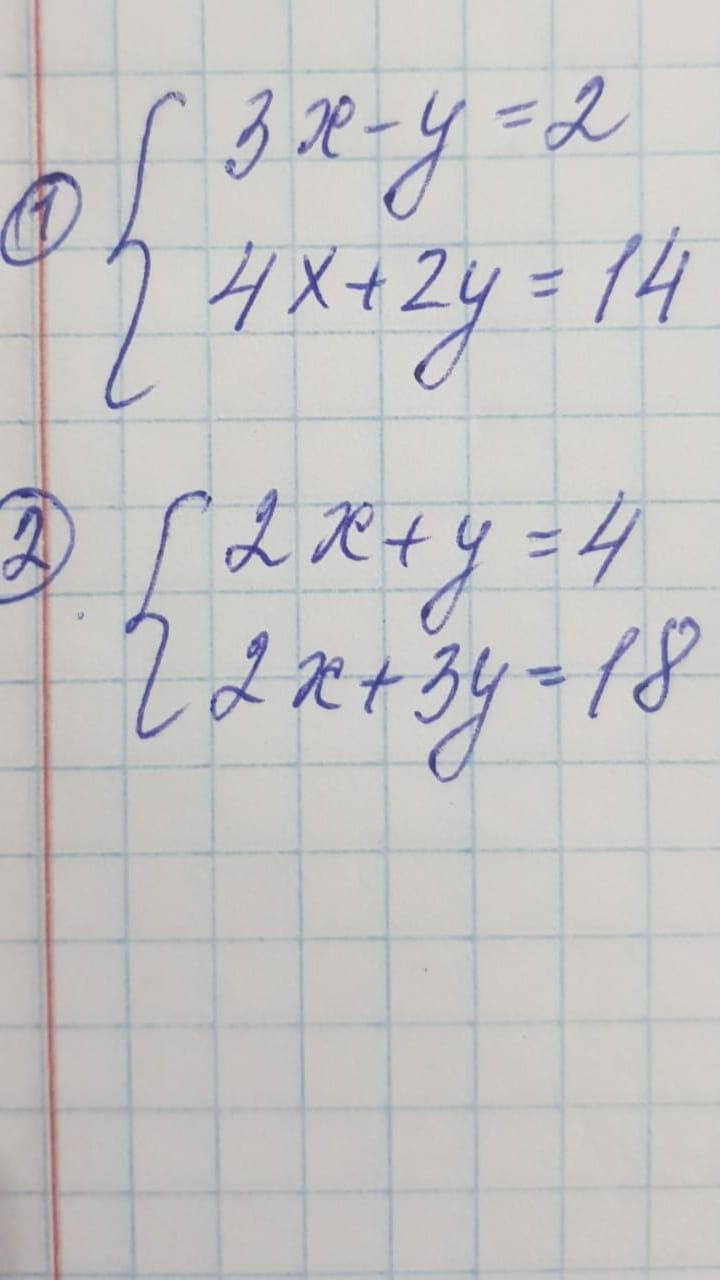 ① { 3x-y=2
4x+2y=14
② { 2x+y=4
2x+3y=18